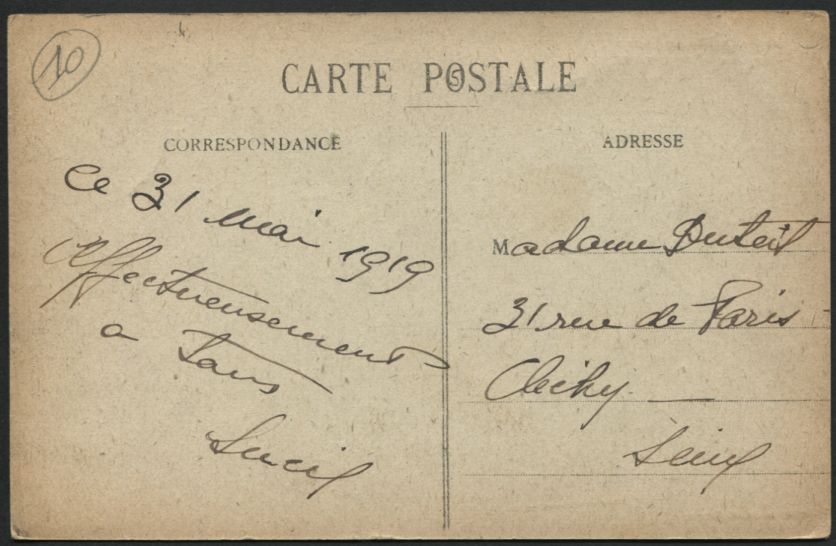 10
CARTE POSTALE
CORRESPONDANCE
Ce 31 Mai 1919
Affectueusement
a Tous
Lucie
ADRESSE
Madame Duteil
31 rue de Paris
Clichy
Seine